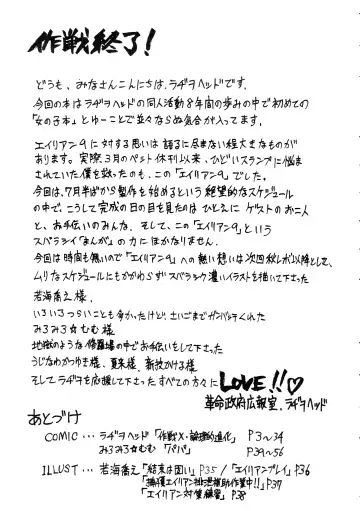 作戦終了!
どうも、みなさんこんにちは。ラヂヲヘッドです。
今回の本はラヂヲヘッドの同人活動8年間の歩みの中で初めての
「女の子本」とゆーことで並々ならぬ気合が入ってます。
エイリアン9に対する思いは語るに尽きない程大きなものが
あります。実際、3月のペット休刊以来、ひどいスランプに悩ま
されていた僕を救ったのも、この「エイリアン9」でした。
今回は、7月半ばから製作を始めるという絶望的なスケジュール
の中で、こうして完成の日の目を見たのはひとえにゲストのお二人
と、お手伝いのみんな、そして、この「エイリアン9」という
スバラシイ「まんが」の力にほかなりません。
今回は時間も無いので「エイリアン9」への熱い想いは次回秋しか以降として、
ムリなスケジュールにもかかわらずスバラシク濃いイラストを描いて下さった
若海喬え様、
いろいろつらいことも多かったけど、さいごまでガンバッてくれた
みるみる☆むむ様
地獄のような修羅場の中でお手伝いをして下さった
うじなわかつゆき様、夏来様、新技かける様
そしてラヂヲを応援して下さったすべての方々に LOVE!!♡
革命政府広報室、ラヂヲヘッド
あとづけ
COMIC・・・ラヂヲヘッド「作戦X・論理的進化」 P3〜34
みるみる☆むむ「パパ」 P39〜56
ILLUST・・・若海喬え「結末は固い」P35 /「エイリアンプレイ」P36
「捕獲エイリアン排泄補助作業中!!」P37
「エイリアン対策練習」P38